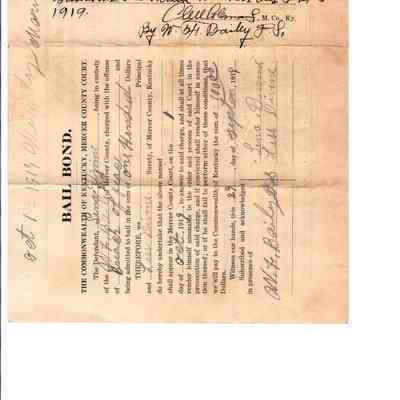 1919.
By W. H. Bailey D. S.
S. M. Co. Ky.
Oct 1 1919
BAIL BOND.
THE COMMONWEALTH OF KENTUCKY, MERCER COUNTY COURT.
The Defendant, being in custody
of the Mercer County, charged with the offense
of Breach of Peace
being admitted to bail in the sum of one Hundred Dollars
THEREFORE we Principal
and Surety, of Mercer County, Kentucky
do hereby undertake that the above named
shall appear in the Mercer County Court, on the 1
day of Oct. 1919 to answer to said charge, and shall at all times
render himself amenable to the order and process of said Court in the
prosecution of said charge, and if convicted shall render himself in execu-
tion thereof; or if he shall fail to perform either of these conditions, that
we will pay to the Commonwealth of Kentucky the sum of 100.00
Dollars.
Witness our hands, this 29 day of Septem 1919
Subscribed and acknowledged
in presence of
W. H. Bailey D S